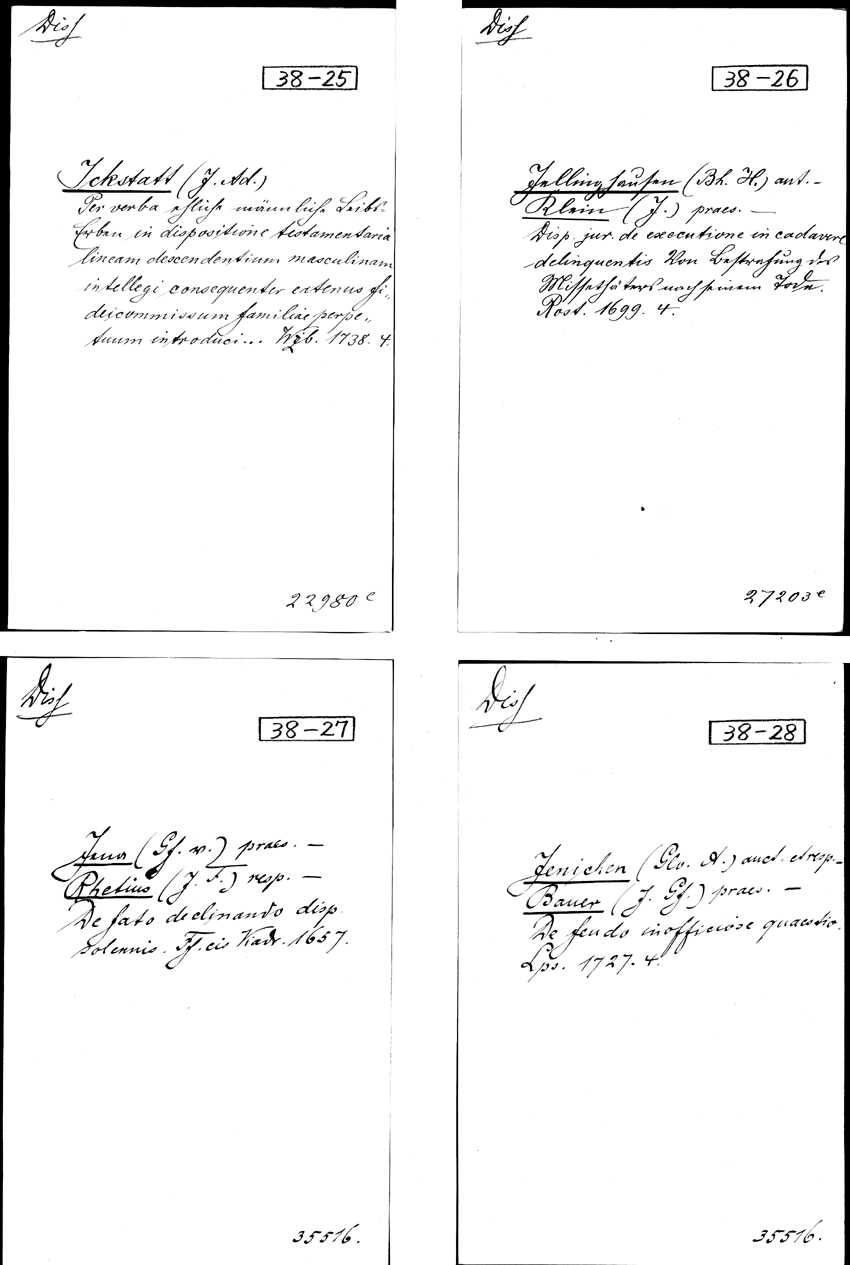 Diss
38-25
Ickstatt (J. Ad.)
Per verba ehliche männliche Leibs-
Erben in dispositione testamentaria
lineam descendentium masculinam
intellegi consequenter eatenus fi-
deicommissum familiae perpe-
tuum introduci... Wzb. 1738. 4.
22980 e
Diss
38-26
Jellinghausen (Bh. H.) aut. -
Klein (J.) praes. -
Disp. jur. de executione in cadavere
delinquentis Von Bestrafung des
Missethäters nach seinem Tode.
Rost. 1699. 4.
27203 e
Diss
38-27
Jena (Gf. v.) praes. -
Rhetius (J. F.) resp. -
De fato declinando disp.
solennis. Ff. cis Viadr. 1657.
35516.
Diss
38-28
Jenichen (Glo. A.) auct. et resp. -
Bauer (J. Gf.) praes. -
De feudo inofficiose quaestio.
Lps. 1727. 4.
35516.